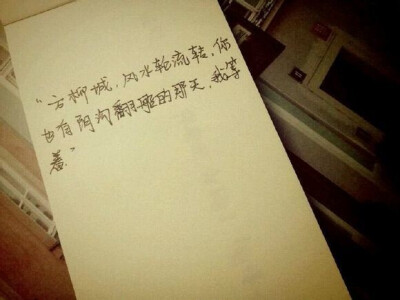 “方柳城，风水轮流转，你
也有阴沟翻雕的那天，我等
着。”